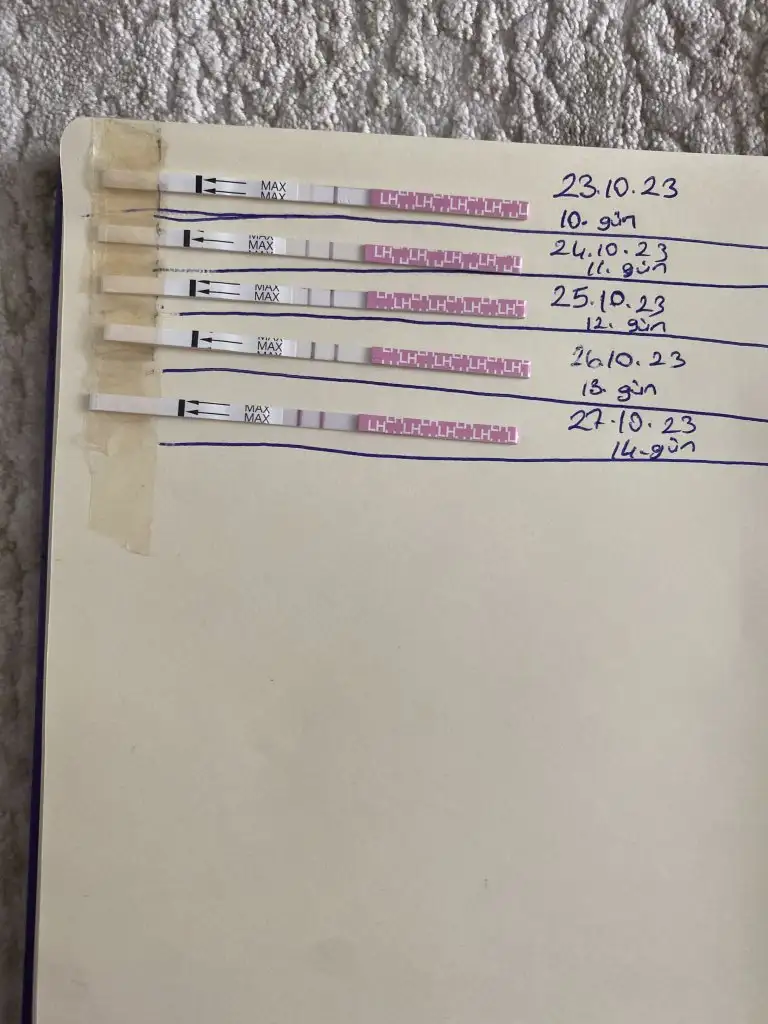 MAX
MAX
LH LH LH LH LH
23.10.23
10. gün
MAX
MAX
LH LH LH LH LH
24.10.23
11. gün
MAX
MAX
LH LH LH LH LH
25.10.23
12. gün
MAX
MAX
MAX
LH LH LH LH LH
26.10.23
13. gün
MAX
MAX
LH LH LH LH LH
27.10.23
14. gün